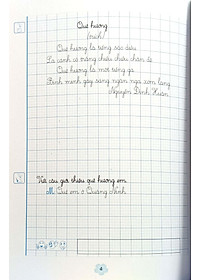 Quê hương
(trích)
Quê hương là tiếng sáo diều
Là cánh cò trắng chiều chiều chân đê
Quê hương là một tiếng gà
Bình minh gáy sáng ngân nga xóm làng
Nguyễn Đình Huân
Viết câu giới thiệu quê hương em.
M: Quê em ở Quảng Ninh
4